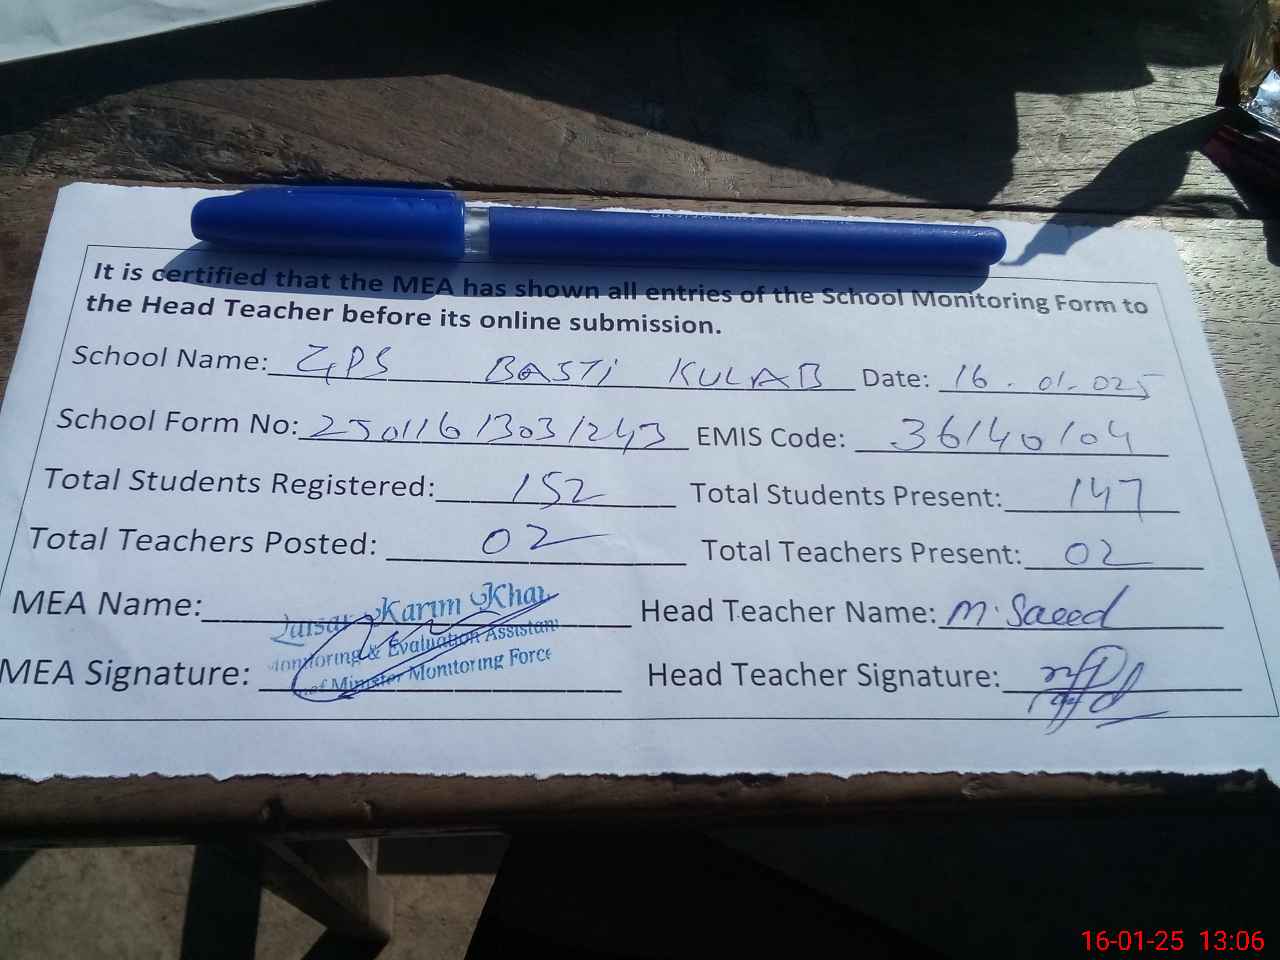 It is certified that the MEA has shown all entries of the School Monitoring Form to
the Head Teacher before its online submission.
School Name: GPS BASTI KULAB Date: 16.01.025
School Form No: 25011613031243 EMIS Code: 36140104
Total Students Registered: 152 Total Students Present: 147
Total Teachers Posted: 02 Total Teachers Present: 02
MEA Name: Karim Khan Head Teacher Name: M. Saeed
Monitoring & Evaluation Assistant
MEA Signature: Minister Monitoring Force Head Teacher Signature:
16-01-25 13:06